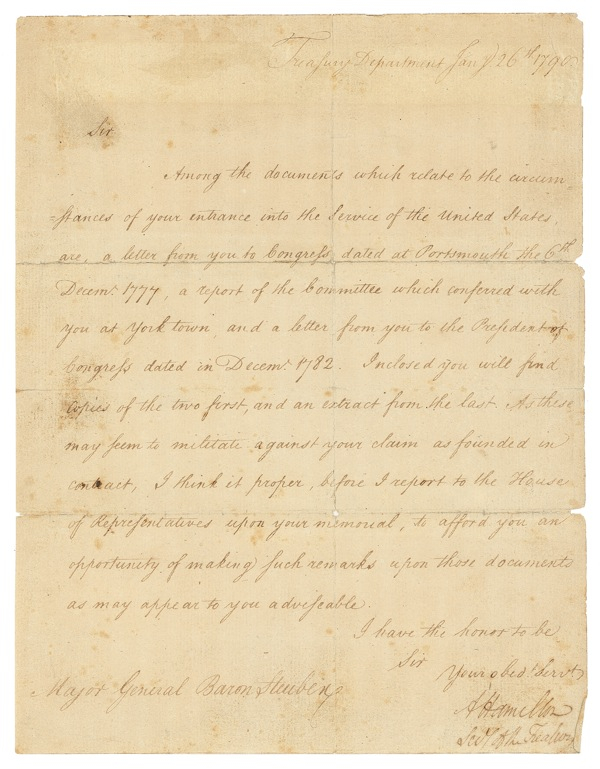 Treasury Department Jany. 26th 1790
Sir
Among the documents which relate to the circum-
=stances of your entrance into the Service of the United States,
are, a letter from you to Congress dated at Portsmouth the 6th
Decemr. 1777, a report of the Committee which conferred with
you at York town, and a letter from you to the President of
Congress dated in Decemr. 1782. Inclosed you will find
Copies of the two first, and an extract from the last. As these
may seem to militate against your claim as founded in
contract, I think it proper, before I report to the House
of Representatives upon your memorial, to afford you an
opportunity of making such remarks upon those documents
as may appear to you adviseable.
I have the honor to be
Sir
Your obedt. Servt.
A Hamilton
Secy of the Treasury
Major General Baron Steuben